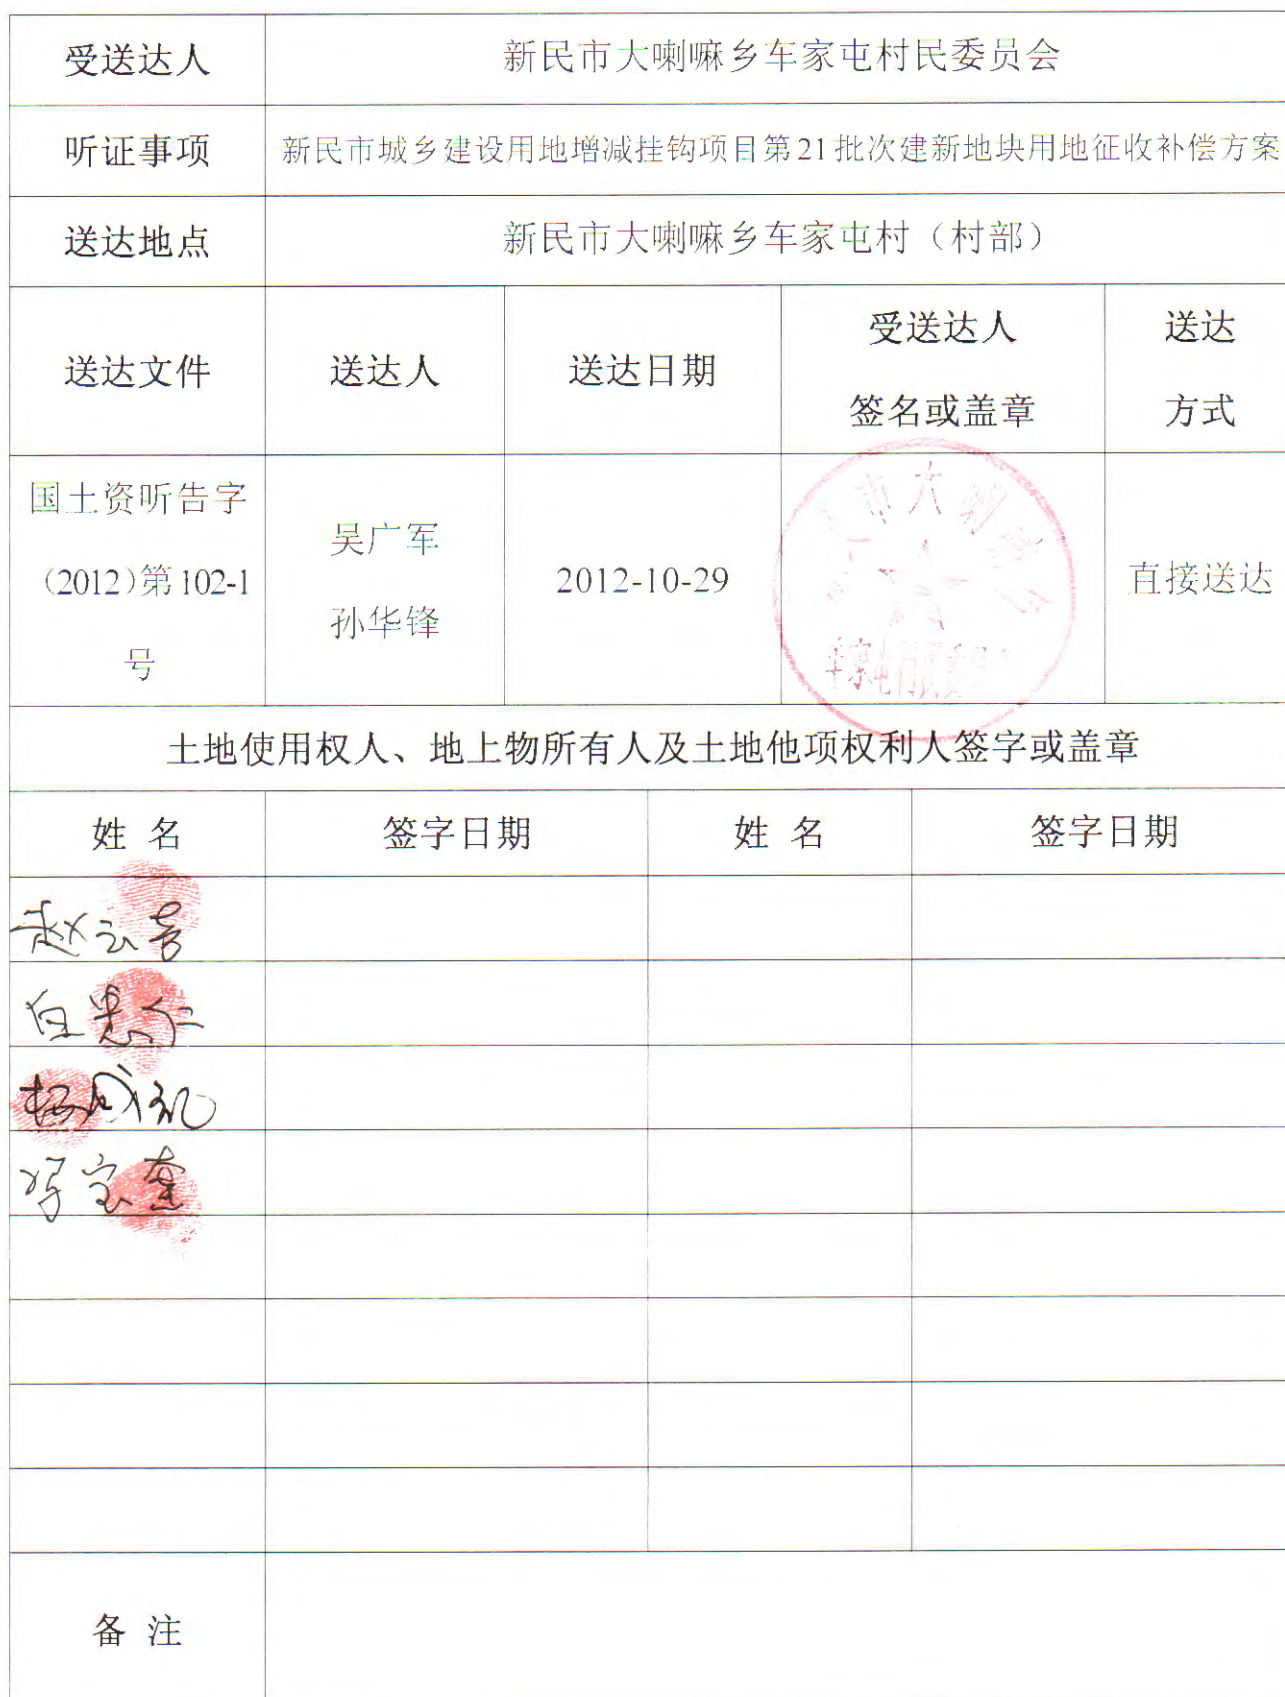 受送达人 新民市大喇嘛乡车家屯村民委员会
听证事项 新民市城乡建设用地增减挂钩项目第21批次建新地块用地征收补偿方案
送达地点 新民市大喇嘛乡车家屯村（村部）
送达文件 送达人 送达日期 受送达人 送达
签名或盖章 方式
国土资听告字
（2012）第102-1
号
吴广军
孙华锋
2012-10-29
市大喇嘛乡
车家屯村民委员会
直接送达
土地使用权人、地上物所有人及土地他项权利人签字或盖章
姓 名 签字日期 姓 名 签字日期
赵云喜
白恩仁
杨成礼
冯宝奎
备 注